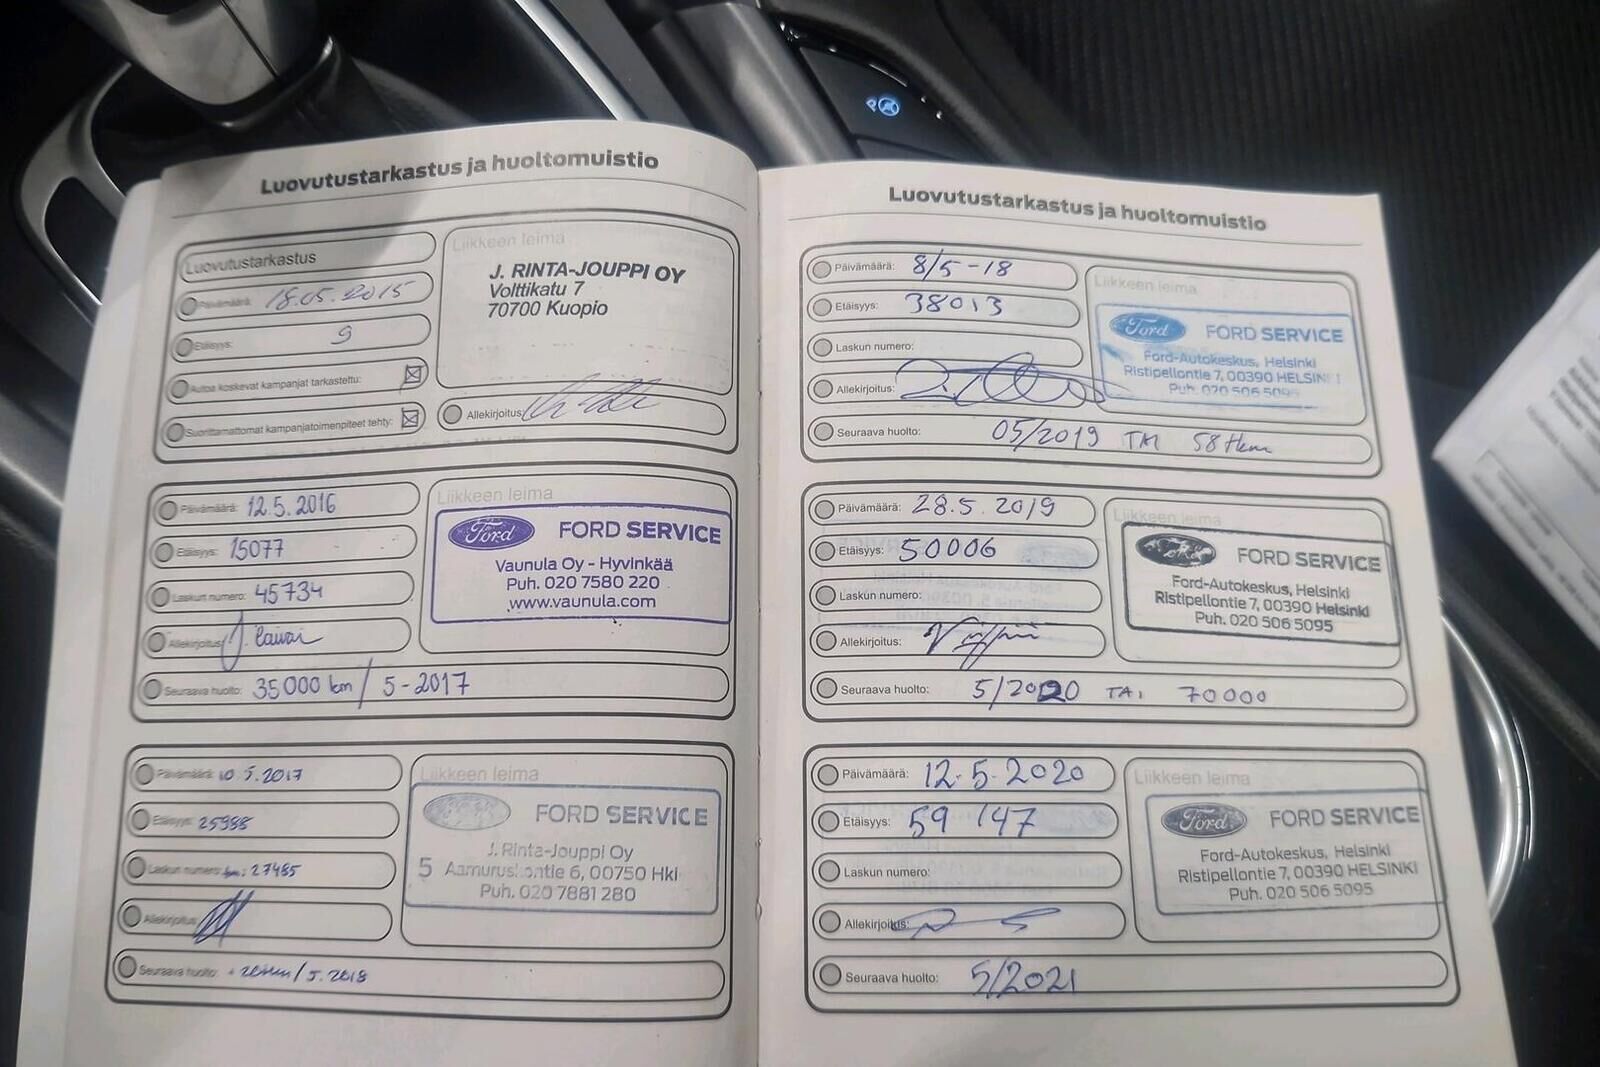 Luovutustarkastus ja huoltomuistio
Luovutustarkastus
Päivämäärä: 18.05.2015
Etäisyys: 9
Autoa koskevat kampanjat tarkastettu:
Suorittamattomat kampanjatoimenpiteet tehty:
Liikkeen leima
J. RINTA-JOUPPI OY
Volttikatu 7
70700 Kuopio
Allekirjoitus:
Päivämäärä: 12.5.2016
Etäisyys: 15077
Laskun numero: 45734
Allekirjoitus:
Seuraava huolto: 35000 km / 5-2017
Liikkeen leima
Ford FORD SERVICE
Vaunula Oy - Hyvinkää
Puh. 020 7580 220
www.vaunula.com
Päivämäärä: 10.5.2017
Etäisyys: 25988
Laskun numero: 27485
Allekirjoitus:
Seuraava huolto: /5.2018
Liikkeen leima
FORD SERVICE
J. Rinta-Jouppi Oy
5 6, 00750 Hki
Puh. 020 7881 280
Luovutustarkastus ja huoltomuistio
Päivämäärä: 8/5-18
Etäisyys: 38013
Laskun numero:
Allekirjoitus:
Seuraava huolto: 05/2019 TAI 58 tkm
Liikkeen leima
Ford FORD SERVICE
Ford-Autokeskus, Helsinki
Ristipellontie 7, 00390 HELSINKI
Puh. 020 506 5095
Päivämäärä: 28.5.2019
Etäisyys: 50006
Laskun numero:
Allekirjoitus:
Seuraava huolto: 5/2020 TAI 70000
Liikkeen leima
FORD SERVICE
Ford-Autokeskus, Helsinki
Ristipellontie 7, 00390 Helsinki
Puh. 020 506 5095
Päivämäärä: 12.5.2020
Etäisyys: 59 147
Laskun numero:
Allekirjoitus:
Seuraava huolto: 5/2021
Liikkeen leima
Ford FORD SERVICE
Ford-Autokeskus, Helsinki
Ristipellontie 7, 00390 HELSINKI
Puh. 020 506 5095